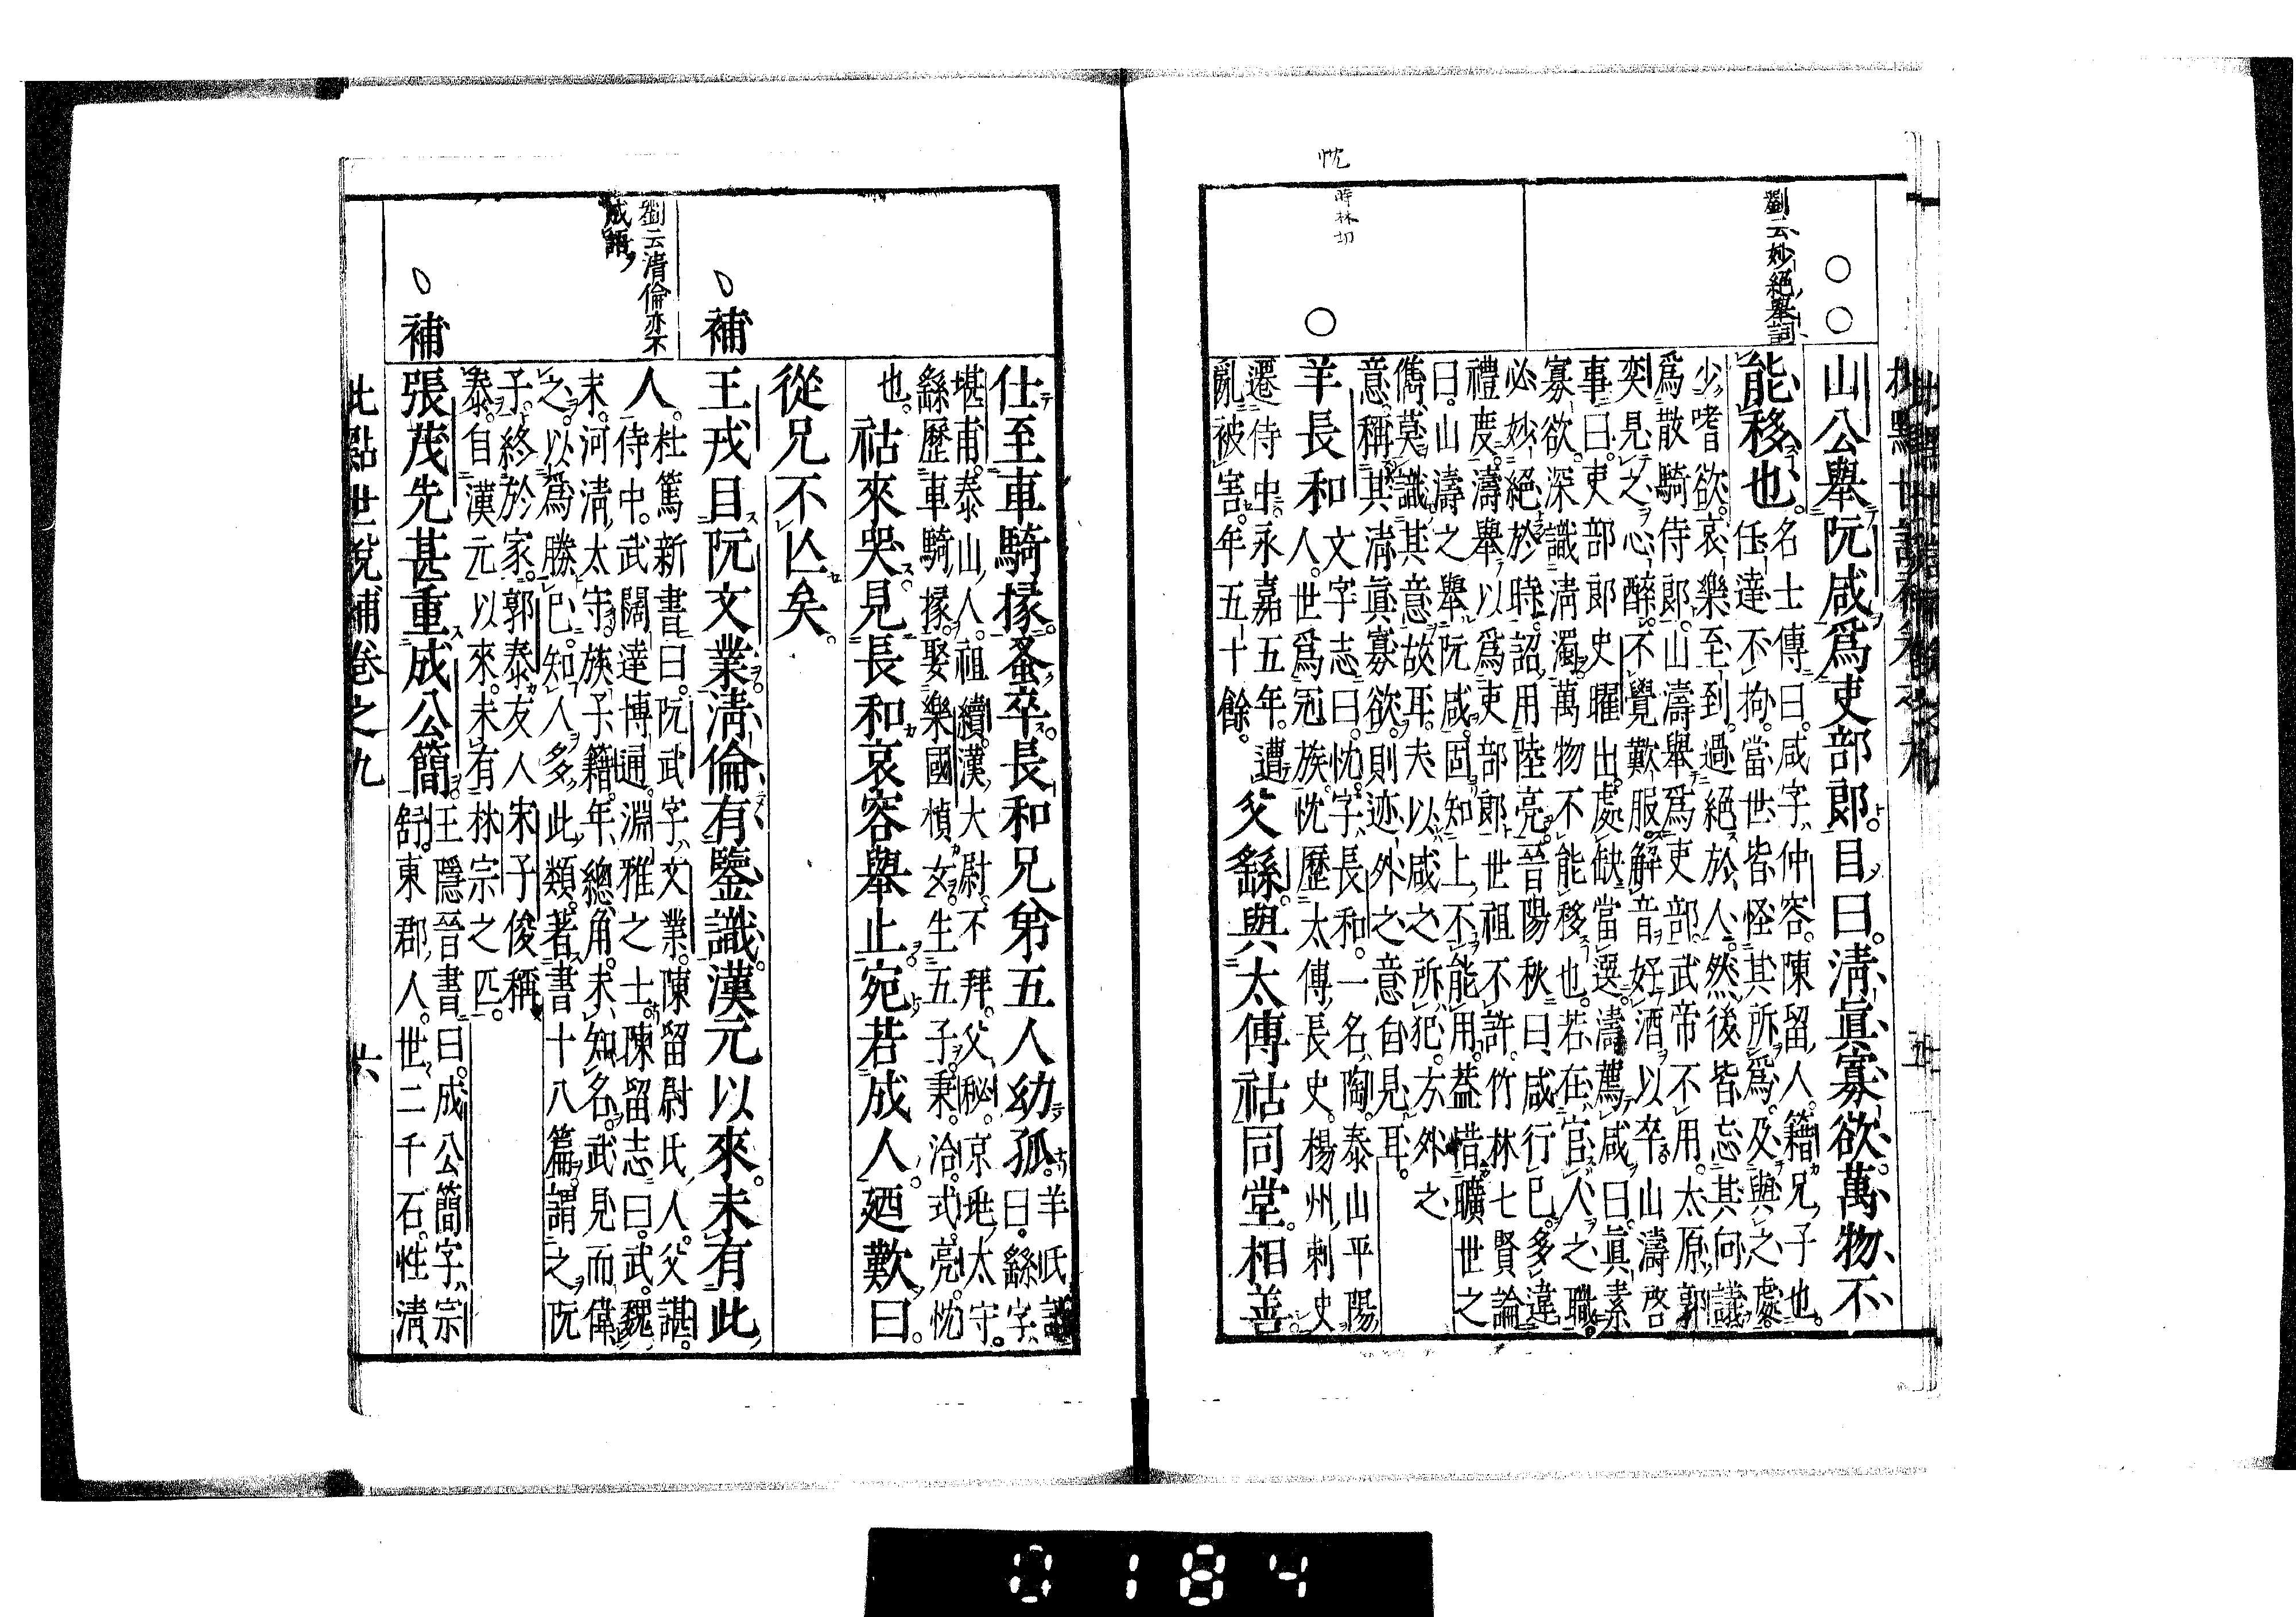 忱
時林切
劉云妙絶舉詞
山公舉阮咸爲吏部郎目曰清眞寡欲萬物不
能移也
名士傳曰咸字仲容陳留人籍兄子也
任達不拘當世皆怪其所爲及與之處
少嗜欲哀樂至到過絶於人然後皆忘其向議
爲散騎侍郎山濤舉爲吏部武帝不用太原郭
奕見之心醉不覺歎服解音好酒以卒山濤啓
事曰吏部郎史曜出處缺當選濤薦咸曰眞素
寡欲深識清濁萬物不能移也若在官人之職
必妙絶於時詔用陸亮晉陽秋曰咸行已多違
禮度濤舉以爲吏部郎世祖不許竹林七賢論
曰山濤之舉阮咸固知上不能用蓋惜曠世之
儁莫識其意故耳夫以咸之所犯方外之
意稱其清眞寡欲則迹外之意自見耳
羊長和人
文字志曰忱字長和一名陶泰山平陽
世爲冠族忱歷太傳長史楊州刺史
遷侍中永嘉五年遭
亂被害年五十餘
父繇與太傅祜同堂相善
仕至車騎掾蚤卒長和兄弟五人幼孤
羊氏譜
曰繇字
堪甫泰山人祖續漢大尉不拜父秘京兆太守
繇歷車騎掾娶樂國禎女生五子秉洽式亮忱
也
祜來哭見長和哀容舉止宛若成人廼歎曰
從兄不亾矣
補
王戎目阮文業清倫有鑒識漢元以來未有此
劉云清倫亦不
成語
人
杜篤新書曰阮武字文業陳留尉氏人父諶
侍中武闊達博通淵雅之士陳留志曰武魏
末河清太守族子籍年總角未知名武見而偉
之以爲勝已知人多此類著書十八篇謂之阮
子終於家郭泰友人宋子俊稱
泰自漢元以來未有林宗之匹
補
張茂先甚重成公簡
王隱晉書曰成公簡字宗
舒東郡人世二千石性清
批點世說補卷之九
六